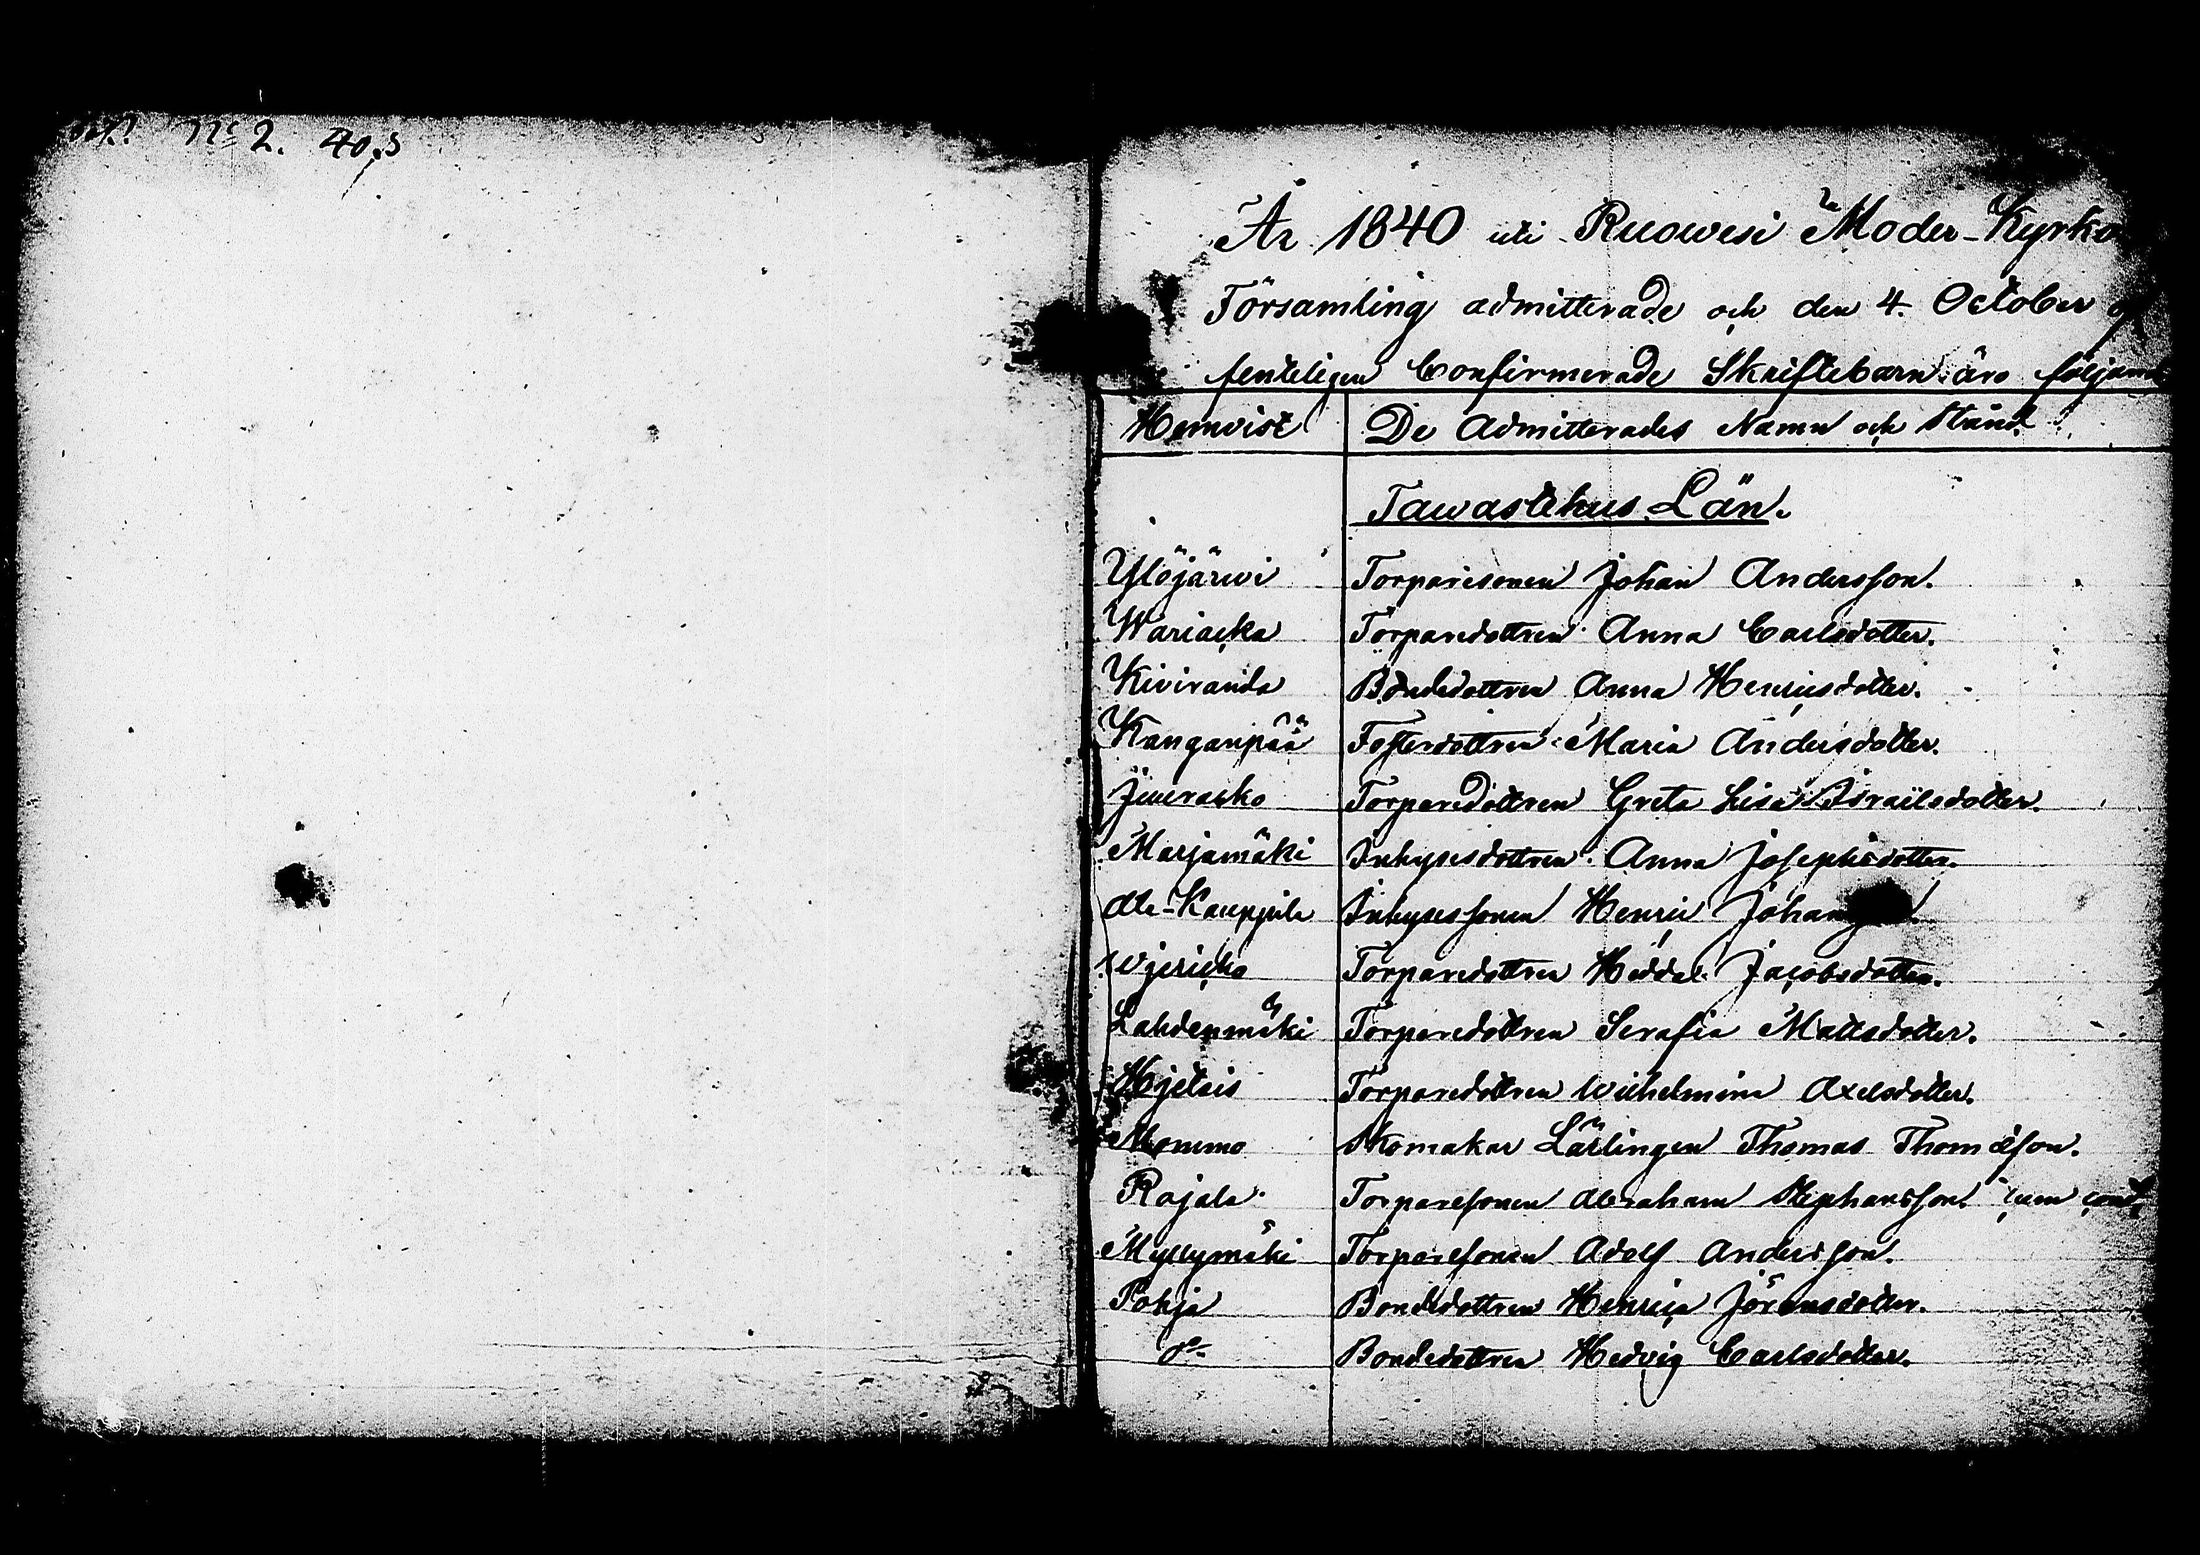 No 2. 40,5
År 1840 uti Ruowesi Moder-Kyrko
Församling admitterade och den 4. October of
fenteligen Confirmerade Skriftebarn äro följande
Hemvist De Admitterades Namn och Stånd.
Tawastehus Län.
Ylöjärwi Torparesonen Johan Andersson.
Wariacka Torparedottren Anna Carlsdotter.
Kiviranda Bondedottren Anna Henricsdotter.
Kanganpää Fosterdottren Maria Andersdotter.
Juuracko Torparedottren Greta Lisa Israëlsdotter.
Marjamäki Inhysesdottren Anna Josephsdotter.
Ala-Kauppila Inhysessonen Henric
Torparedottren Jacobsdotter.
Lahdenmäki Torparedottren Serafia Mattsdotter.
Hjelsis Torparedottren Wilhelmina Axelsdotter.
Mommo Skomakar Lärlingen Thomas Thomæson.
Rajala Torparesonen Abraham Stephansson. cum cond.
Myllymäki Torparesonen Adolf Andersson.
Pohja Bondedottren Henrica Jöransdotter.
do Bondedottren Hedvig Carlsdotter.